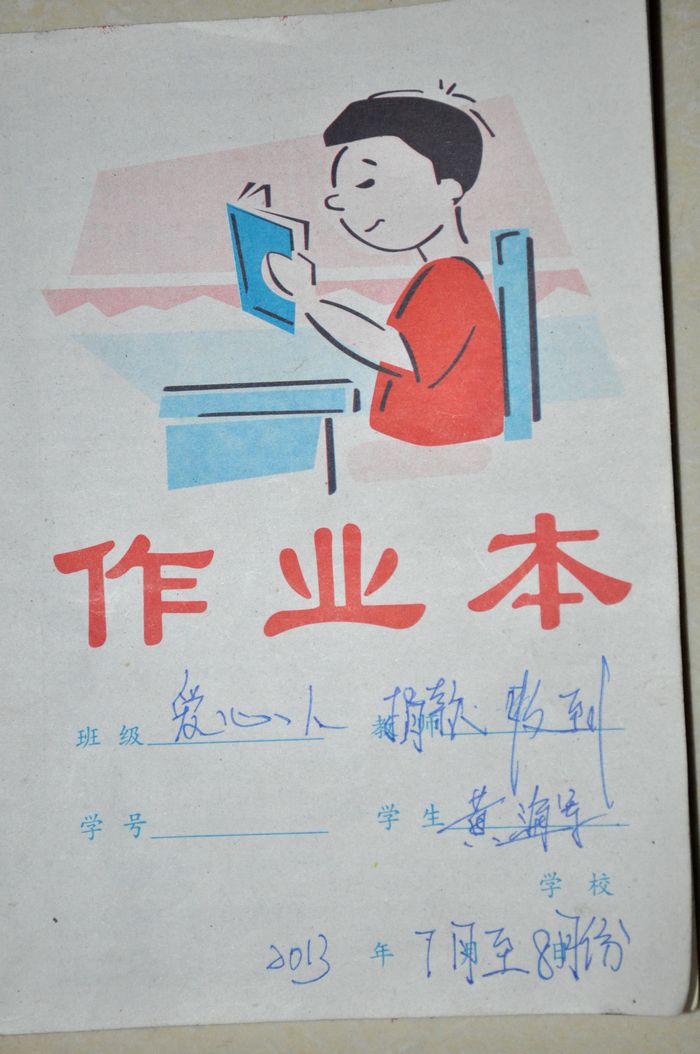 作业本
班级 爱心人 捐款 收到
学号 学生 黄海军
学校
2013 年 7月至8月份